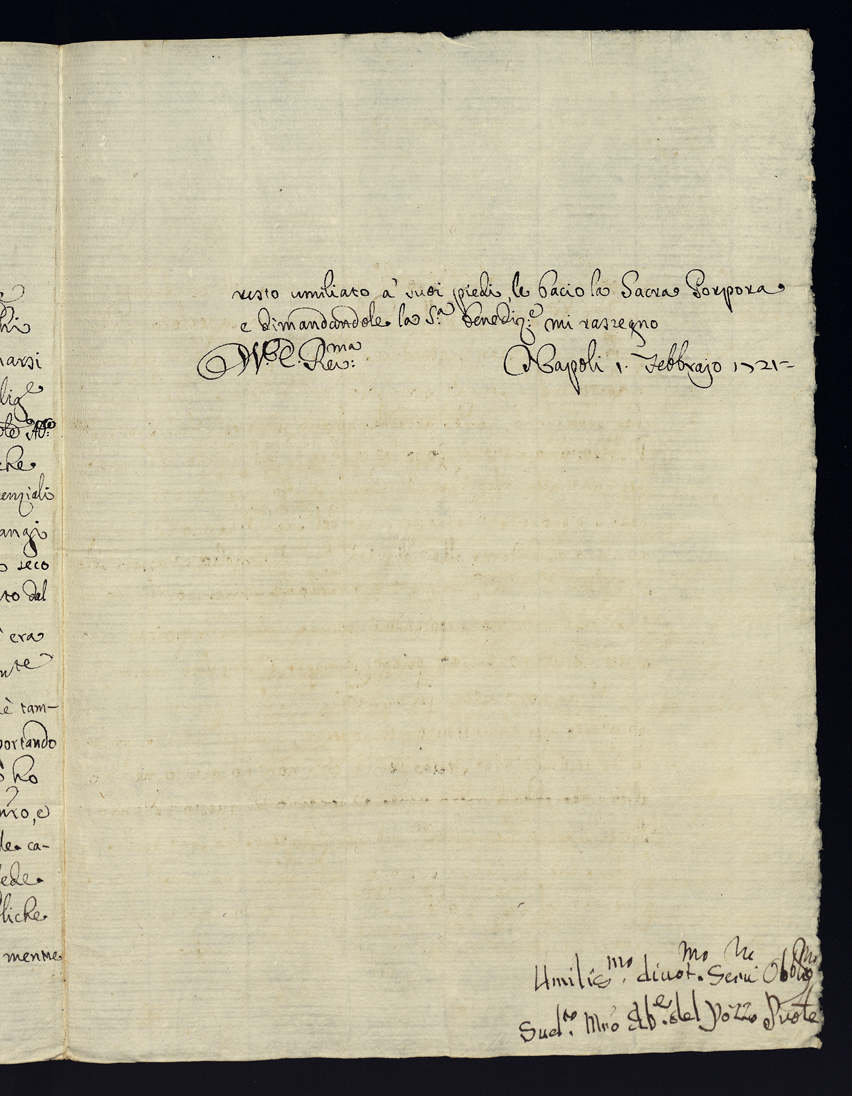 hi
marsi
che
enziali
angi
o seco
to del
era
nte
è tam-
portando
ho
nro, e
le ca-
ede
liche
mente
resto umiliato a' suoi piedi, le bacio la Sacra Porpora
e dimandandole la S.ta Benediz.e mi rassegno
V. E. Rev:ma Napoli 1. Febbrajo 1721=
Umilis.mo divot.mo Seru.re Obblig.mo
Sud.to Mro Ab.e del Pozzo